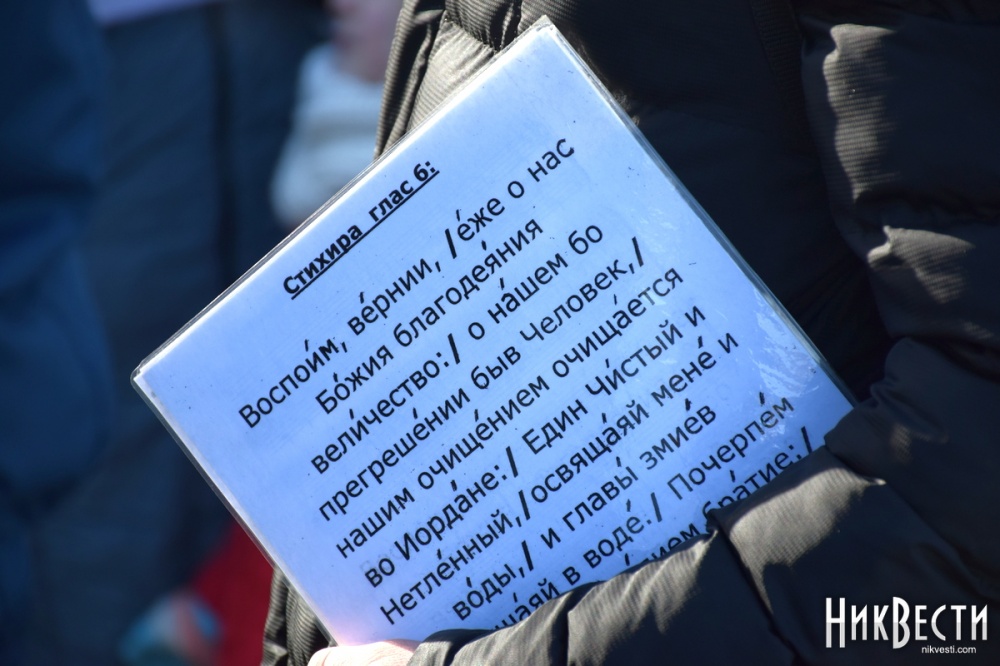 Стихира глас 6:
Воспои́м, ве́рнии, / е́же о нас
Бо́жия благодея́ния
вели́чество: / о на́шем бо
прегреше́нии быв Человек, /
нашим очище́нием очища́ется
во Иорда́не: / Един Чи́стый и
Нетле́нный, / освяща́яй мене́ и
во́ды, / и главы́ змие́в
в воде́: / Почерпе́м
бра́тие: /
НикВести
nikvesti.com